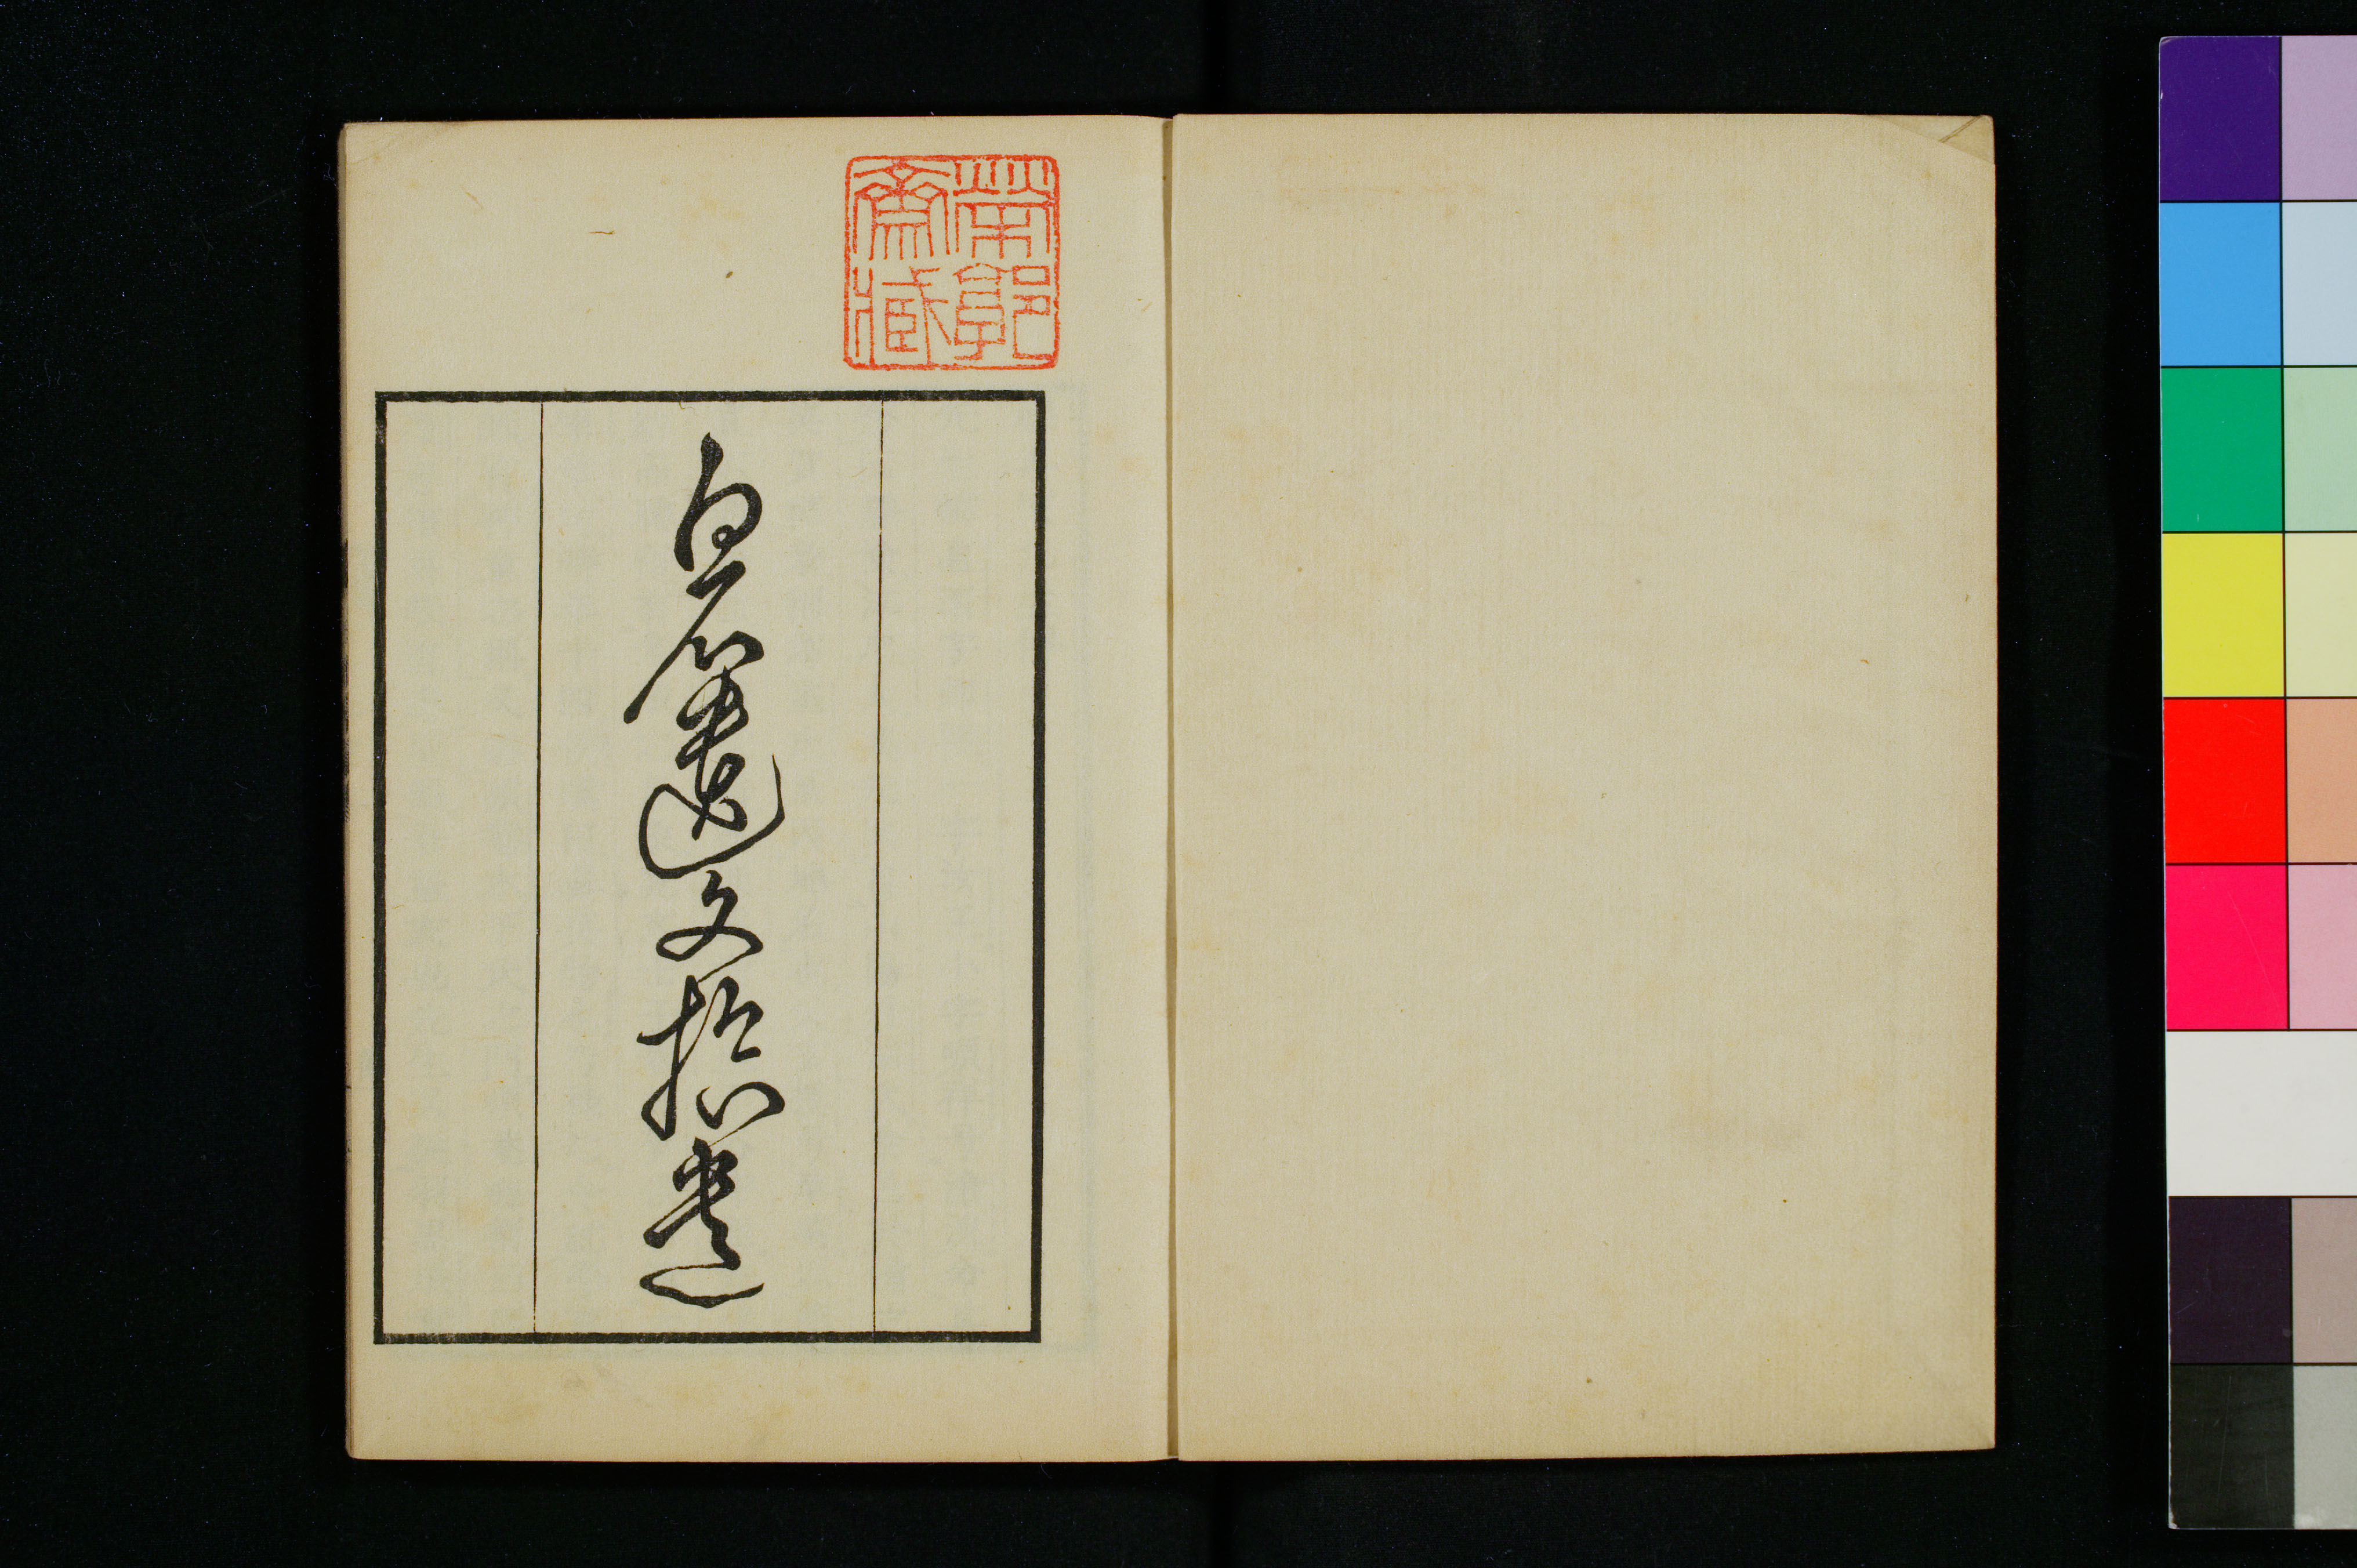 帶郭
齋藏
白石遺文拾遺